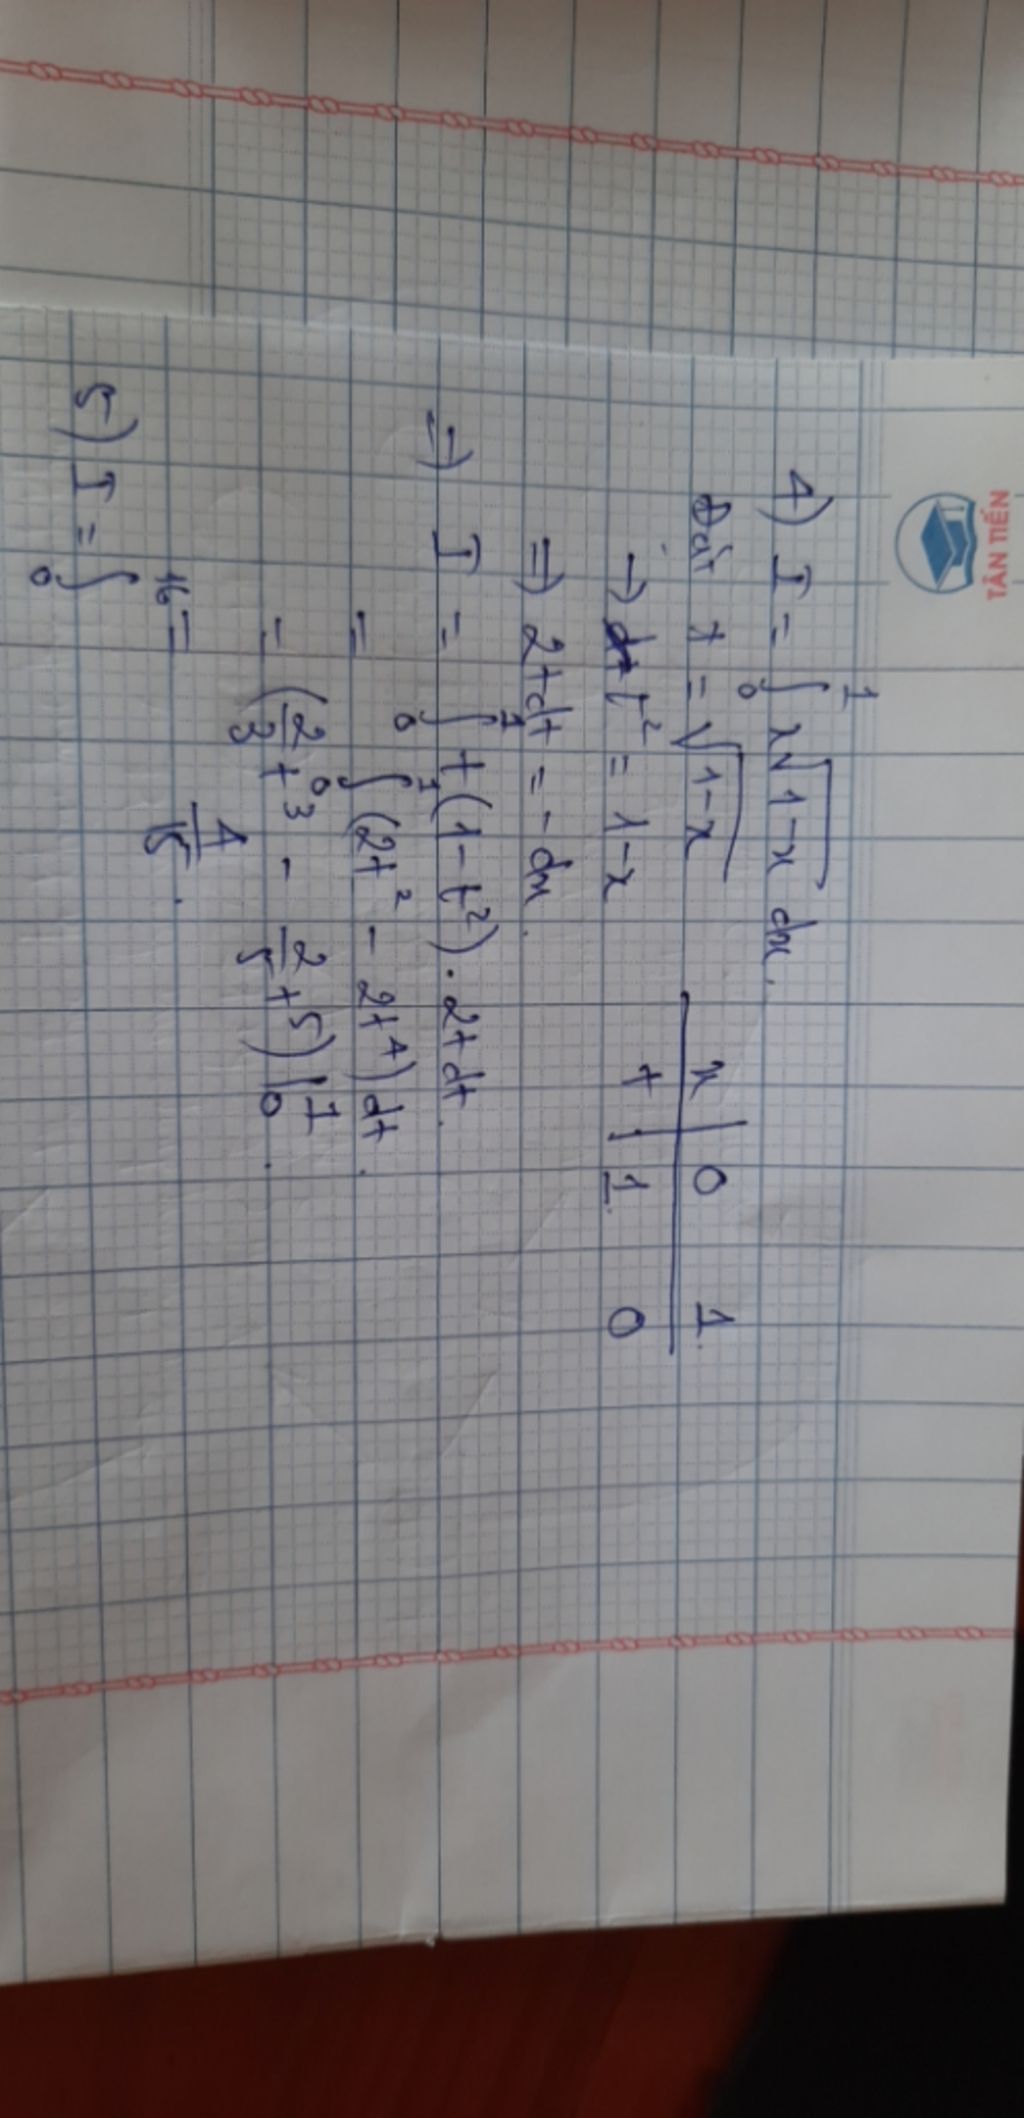 TÂN TIẾN
4) I = ∫₀¹ x√(1-x) dx.
Đặt t = √(1-x)
x | 0 1
t | 1 0
→ t² = 1-x
⇒ 2tdt = -dx.
⇒ I = ∫₀¹ t(1-t²).2tdt.
= ∫₀¹ (2t² - 2t⁴)dt.
= (2/3 t³ - 2/5 t⁵) |₀¹.
= 4/15.
5) I = ∫₀¹⁶